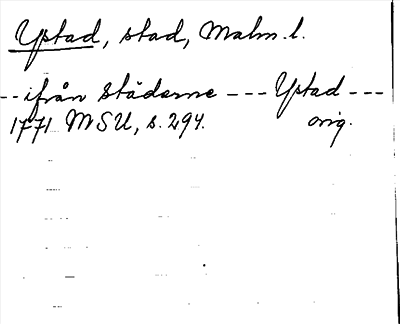 Ystad, stad, Malm. l.
-- ifrån Städerne --- Ystad ---
1771 MSU, s. 294. orig.